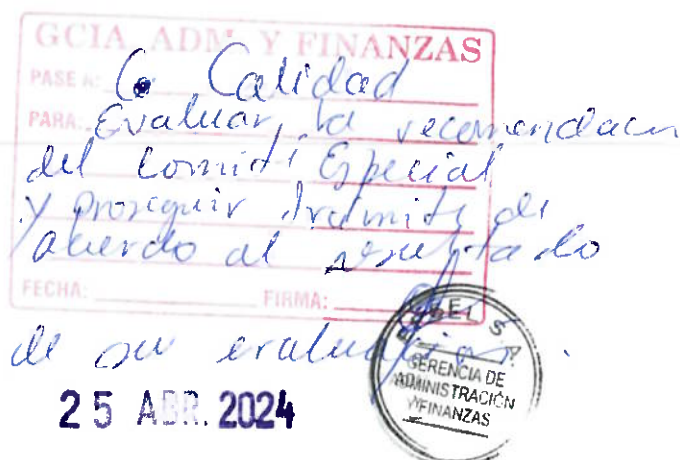 GCIA. ADM. Y FINANZAS
PASE A: Calidad
PARA: Evaluar la
del Comité Especial
y proseguir tramite de
acuerdo al resultado
FECHA: FIRMA:
de su evaluación.
GERENCIA DE
ADMINISTRACIÓN
Y FINANZAS
25 ABR. 2024